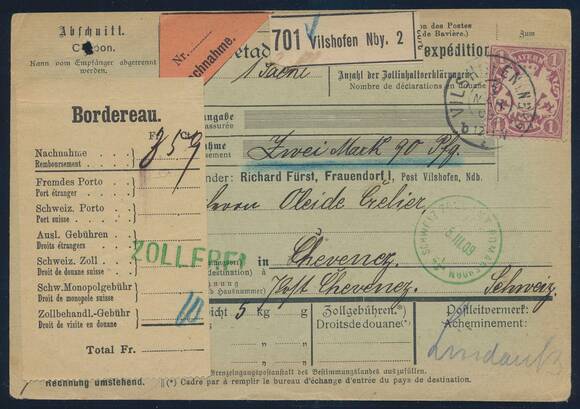 Abschnitt.
Coupon.
Kann vom Empfänger abgetrennt
werden.
Nr.
chnahme.
701 Vilshofen Nby. 2
on des Postes
de Bavière.)
Zum
etad
expédition
1 Sack
Anzahl der Zollinhaltserklärungen
Nombre de déclarations en douane
VILSHOFEN
1 1
1 1
Bordereau.
Fr.
Nachnahme
Remboursement
3 59
Fremdes Porto
Port étranger
Schweiz. Porto
Port suisse
Ausl. Gebühren
Droits étrangers
Schweiz. Zoll
Droit de douane suisse
Schw. Monopolgebühr
Droit de monopole suisse
Zollbehandl.-Gebühr
Droit de visite en douane
10
Total Fr.
ZOLLFREI
Rechnung umstehend.
angabe
assurée
nahme
ursement
Zwei Mark 90 Pfg.
nder: Richard Fürst, Frauendorf I, Post Vilshofen, Ndb.
Herrn
in Chevenez
destination) à
nung
Hausnummer)
Post Chevenez. Schweiz
SCHWEIZ. ZOLL ROMANSHORN
6.III.09
icht 5 kg g
Zollgebühren.
Droits de douane
Postleitvermerk:
Acheminement:
Lindau
Grenzeingangspostanstalt des Bestimmungslandes auszufüllen.
(*) Cadre par à remplir le bureau d'échange d'entrée du pays de destination.